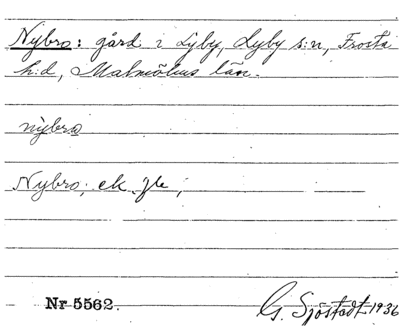 Nybro: gård i Lyby, Lyby s:n, Frosta
h:d, Malmöhus län.
nỳbro
Nybro, ek. jb;
Nr 5562.
G. Sjöstedt 1936